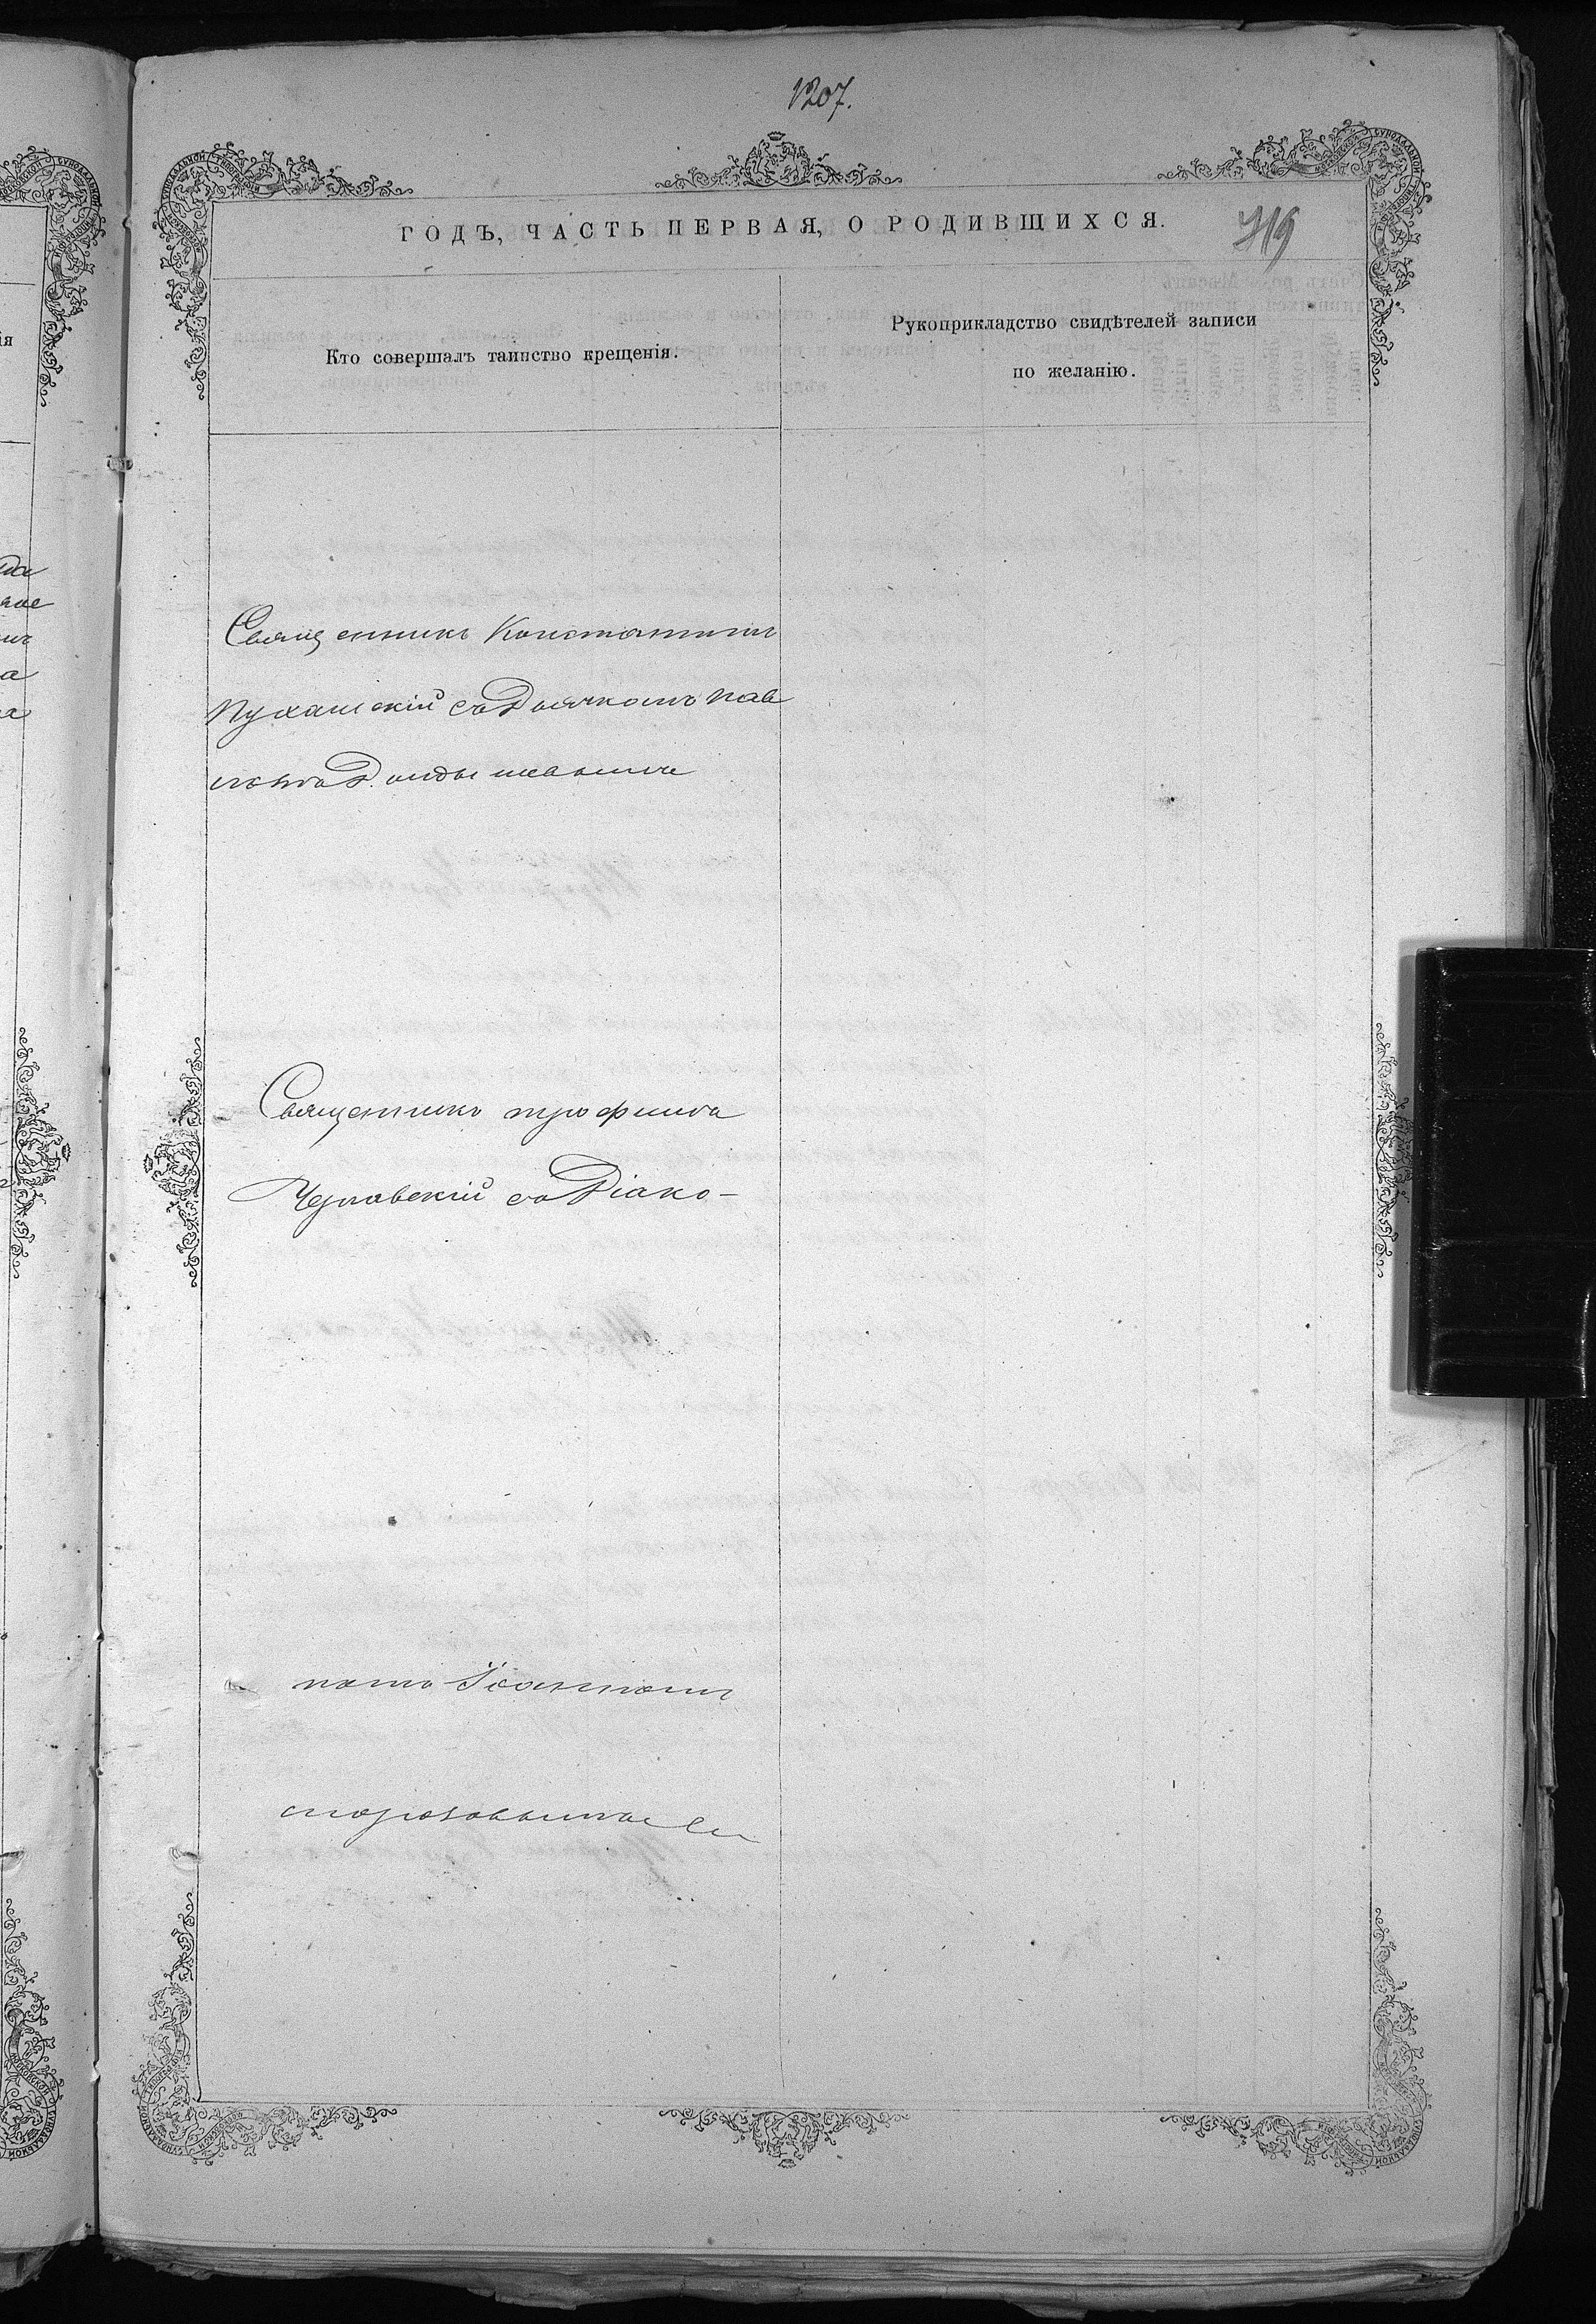 1207.
ГОДЪ, ЧАСТЬ ПЕРВАЯ, О РОДИВШИХСЯ.
719
Кто совершалъ таинство крещенія.
Рукоприкладство свидѣтелей записи
по желанію.
Священникъ Константинъ
съ Дьячкомъ Пав
Священникъ Трофимъ
Чернавскій съ Діако-
номъ Іоанномъ